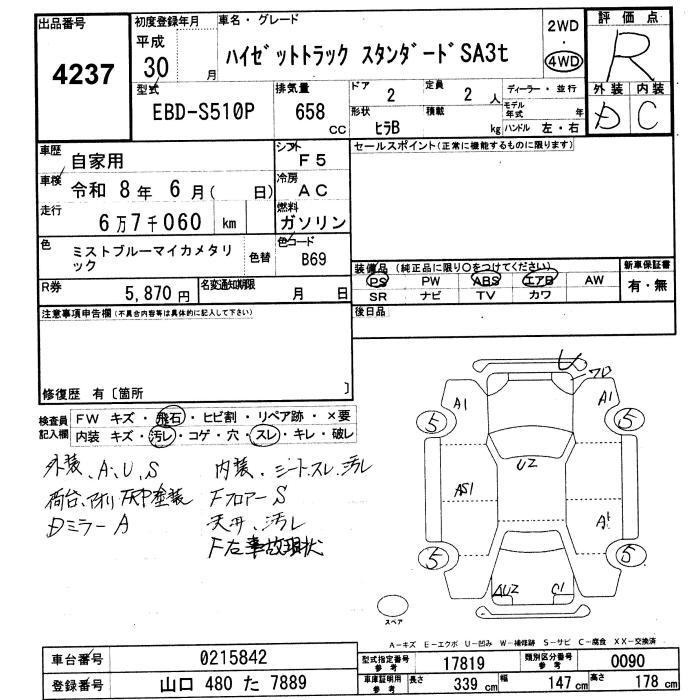 出品番号
4237
初度登録年月
平成
30 月
車名・グレード
ハイゼットトラック スタンダードSA3t
2WD
・
4WD
評価点
R
型式
EBD-S510P
排気量
658 CC
ドア
2
定員
2 人
ディーラー・並行
形状
ヒラB
積載
kg
モデル年式 年
ハンドル 左・右
外装 内装
D C
車歴
自家用
シフト
F5
セールスポイント(正常に機能するものに限ります)
車検
令和 8年 6月( 日)
冷房
AC
走行
6万7千060 km
燃料
ガソリン
色
ミストブルーマイカメタリ
ック
色替
色コード
B69
装備品(純正品に限り○をつけてください)
PS PW ABS エアB AW
SR ナビ TV カワ
新車保証書
有・無
R券
5,870円
名変通知期限
月 日
後日品
注意事項申告欄(不具合内容等は具体的に記入して下さい)
修復歴 有〔箇所 〕
検査員
記入欄
FW キズ・飛石・ヒビ割・リペア跡・×要
内装 キズ・汚レ・コゲ・穴・スレ・キレ・破レ
外装、A、U、S
荷台、アオリ FRP塗装
Dミラー A
内装、シートスレ、汚レ
Fフロアー S
天井、汚レ
F右事故現状
U
A1
A1
5
5
U2
AS1
5
5
AU2
C1
スペア
A－キズ E－エクボ U－凹み W－補修跡 S－サビ C－腐食 XX－交換済
車台番号
0215842
型式指定番号
参考
17819
類別区分番号
参考
0090
登録番号
山口 480 た 7889
車庫証明用
参考
長さ
339 cm
幅
147 cm
高さ
178 cm